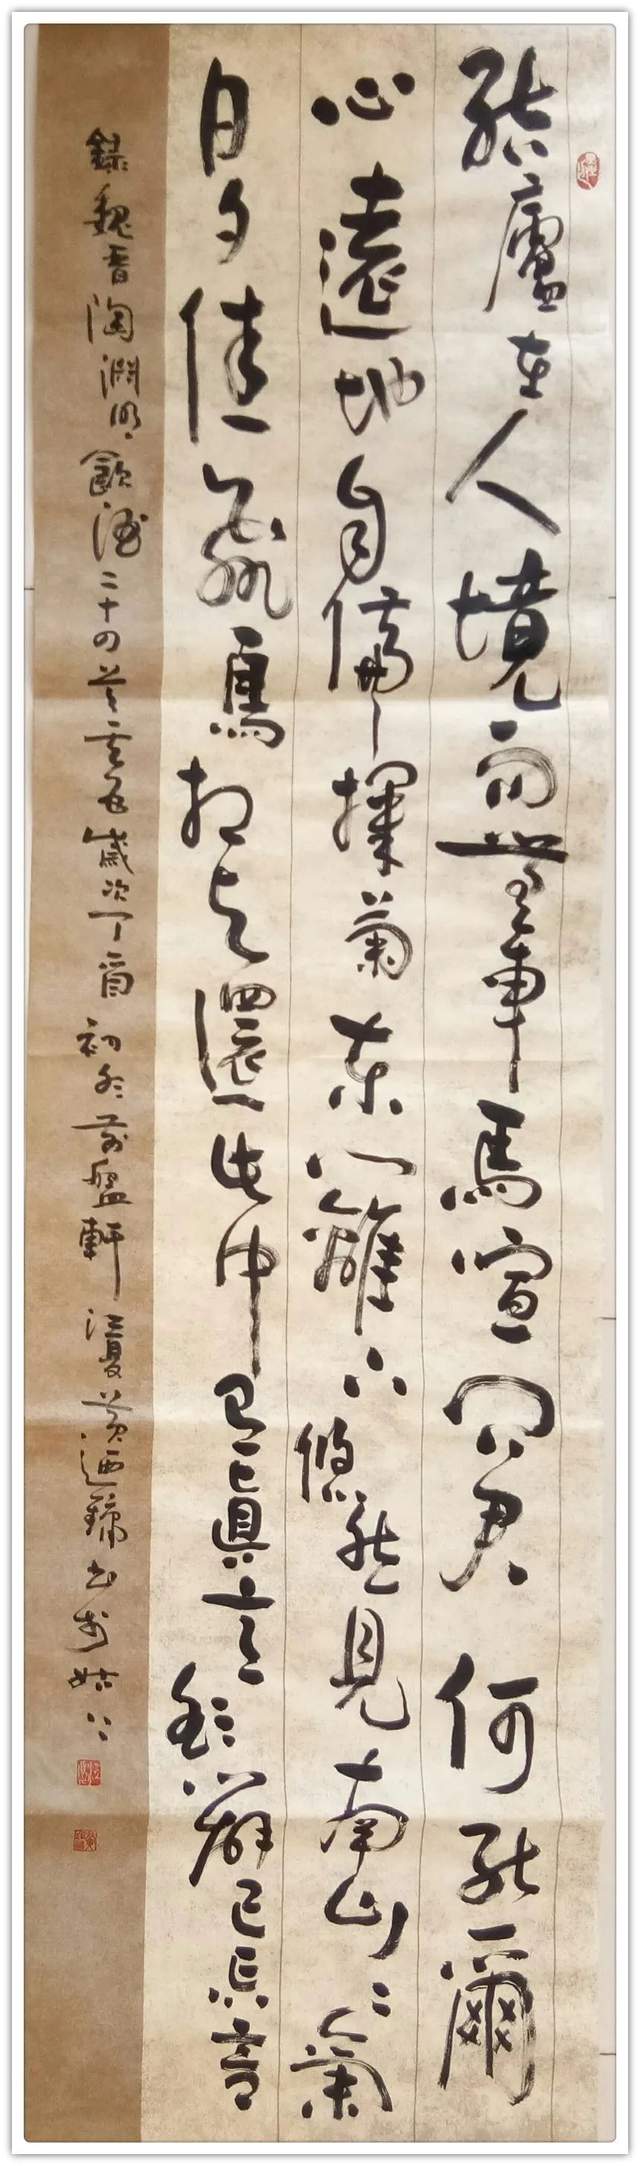 結廬在人境而無車馬喧問君何能爾
心遠地自偏採菊東籬下悠然見南山山氣
日夕佳飛鳥相與還此中有真意欲辯已忘言
錄魏晉陶淵明飲酒二十四首之五歲次丁酉初冬於盤軒江夏黃迺錦書於姑